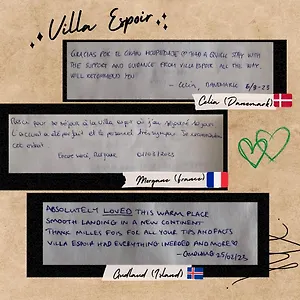 Villa Espoir
GRACIAS POR EL GRAN HOSPEDAJE HAD A QUICK STAY WITH
THE SUPPORT AND GUIDANCE FROM VILLA ESPOIR ALL THE WAY.
WILL RECOMMEND YOU
- Celia, DANEMARK 6/8-23
Celia (Danemark)
Merci pour ce séjour à la villa espoir où j'ai séjourné
L'accueil a été parfait et le personnel très sympa. Je recommande
cet endroit.
Encore merci, Morgane
Morgane (france)
ABSOLUTELY LOVED THIS WARM PLACE
SMOOTH LANDING IN A NEW CONTINENT
THANK MILLES FOIS FOR ALL YOUR TIPS AND FACTS
VILLA ESPOIR HAD EVERYTHING I NEEDED AND MORE
- GUDLAUG 25/02/23
Gudlaug (Island)